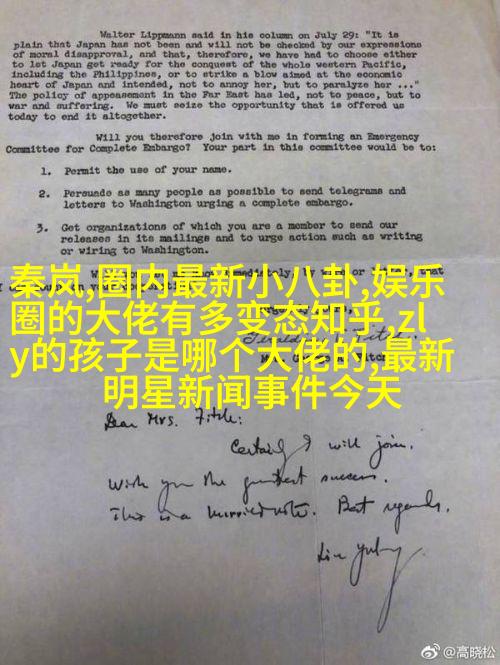 Walter Lippmann said in his column on July 29: "It is
plain that Japan has not been and will not be checked by our expressions
of moral disapproval, and that, therefore, we have had to choose either
to let Japan get ready for the conquest of the whole western Pacific,
including the Philippines, or to strike a blow aimed at the economic
heart of Japan and intended, not to annoy her, but to paralyze her ..."
The policy of appeasement in the Far East has led, not to peace, but to
war and suffering. We must seize the opportunity that is offered us
today to end it altogether.
Will you therefore join with me in forming an Emergency
Committee for Complete Embargo? Your part in this committee would be to:
1. Permit the use of your name.
2. Persuade as many people as possible to send telegrams and
letters to Washington urging a complete embargo.
3. Get organizations of which you are a member to send our
releases in its mailings and to urge action such as writing
or wiring to Washington.
秦岚,圈内最新小八卦,娱乐
圈的大佬有多变态知乎 zl
y的孩子是哪个大佬的,最新
明星新闻事件今天
Dear Mrs. Fitch:
Certainly I will join.
Wish you the greatest success.
This is a hurried note. Best regards.
Lin Yutang
@高晓松